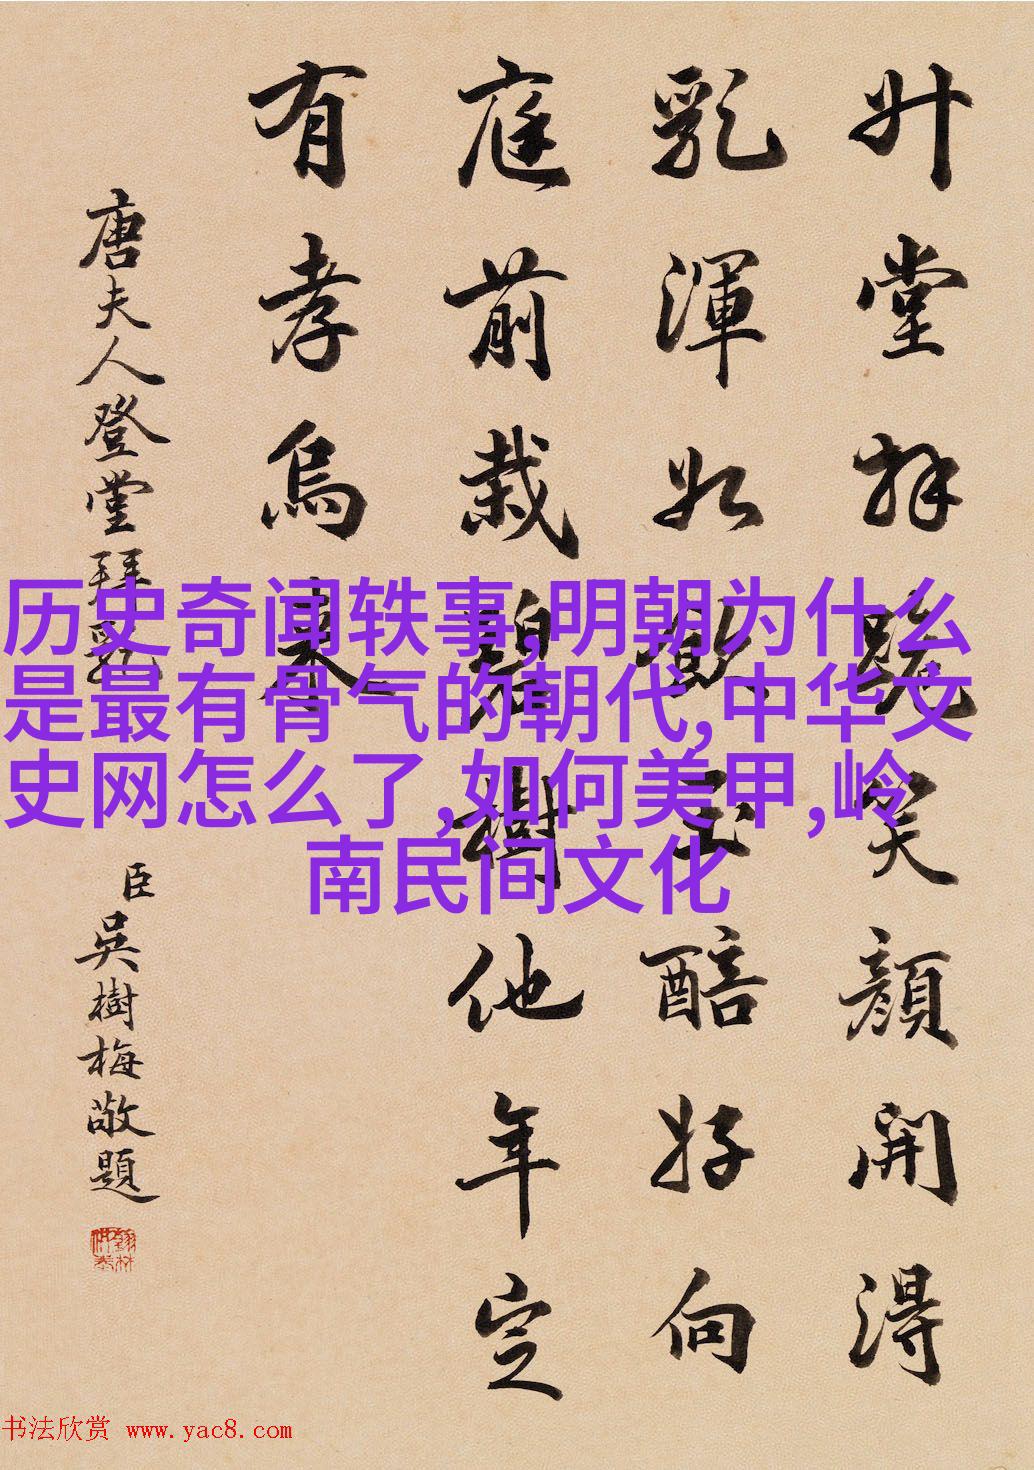 升堂拜跪笑顏開得
乳渾如飲玉醅好向
庭前栽碧樹他年定
有孝烏來
唐夫人登堂拜乳
臣吳樹梅敬題
历史奇闻轶事,明朝为什么
是最有骨气的朝代,中华文
史网怎么了,如何美甲,岭
南民间文化
书法欣赏 www.yac8.com